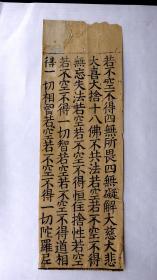 若不空不得四無所畏四無礙解大慈大悲
大喜大捨十八佛不共法若空若不空不得
無忘失法若空若不空不得恒住捨性若空
若不空不得一切智若空若不空不得道相
智一切相智若空若不空不得一切陀羅尼